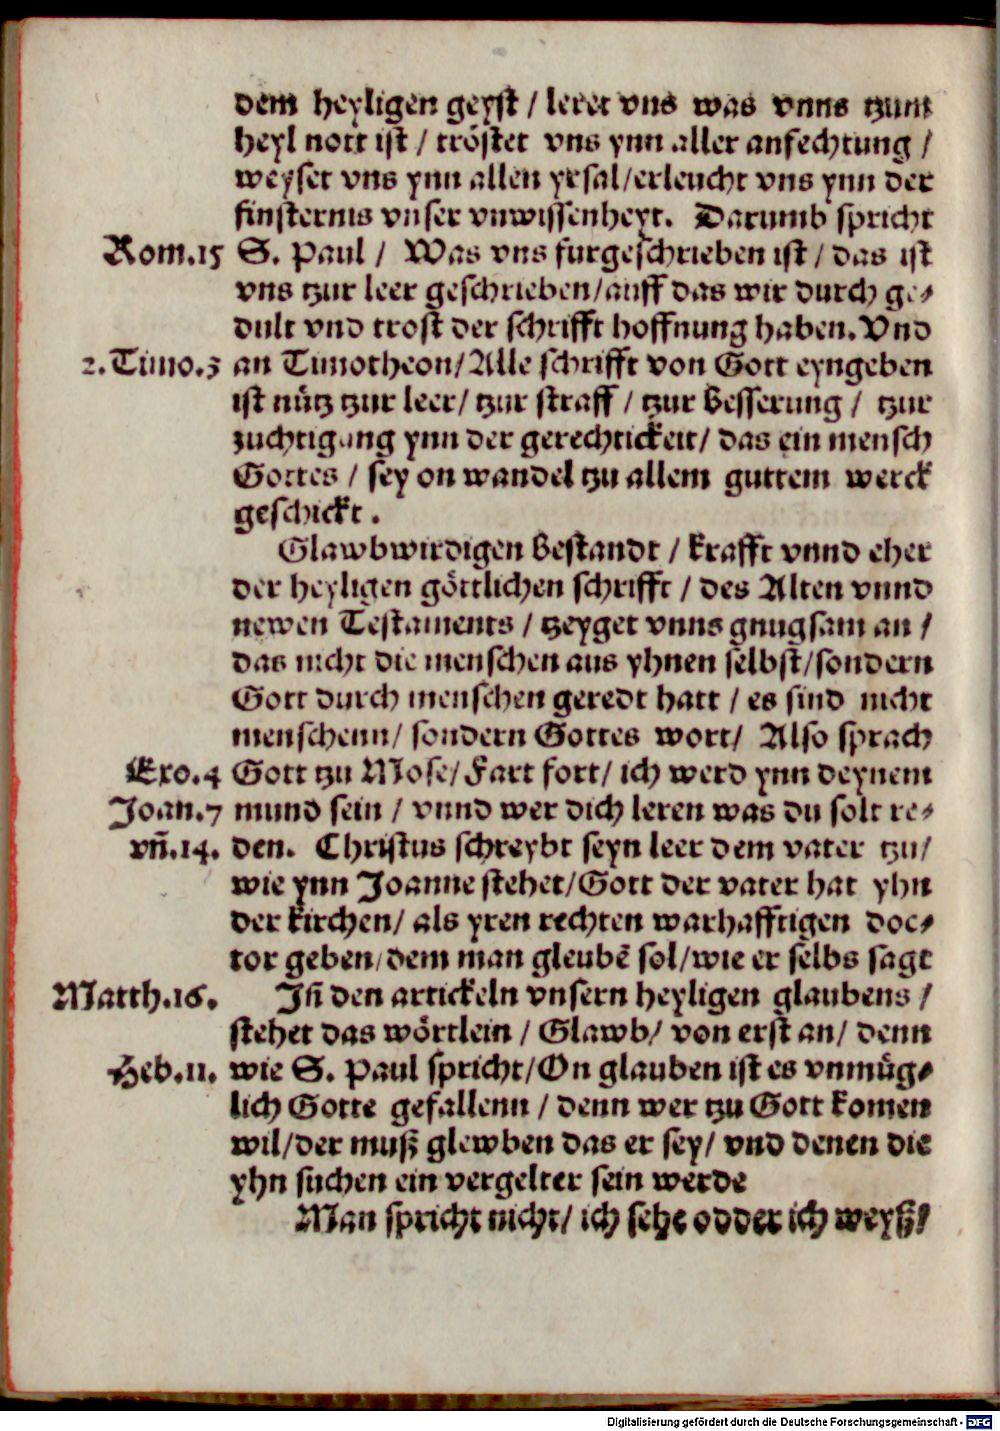 dem heyligen geyst / leret vns was vnns tzum
heyl nott ist / tröstet vns ynn aller anfechtung /
weyset vns ynn allen yrsal/erleucht vns ynn der
finsternis vnser vnwissenheyt. Darumb spricht
Rom.15 S. Paul / Was vns furgeschrieben ist / das ist
vns tzur leer geschrieben/auff das wir durch ge⸗
dult vnd trost der schrifft hoffnung haben. Vnd
2.Timo.3 an Timotheon/Alle schrifft von Gott eyngeben
ist nütz tzur leer/ tzur straff / tzur besserung / tzur
zuchtigung ynn der gerechtickeit/ das ein mensch
Gottes / sey on wandel tzu allem guttem werck
geschickt .
Glawbwirdigen bestandt / krafft vnnd eher
der heyligen göttlichen schrifft / des Alten vnnd
newen Testaments / tzeyget vnns gnugsam an /
das nicht die menschen aus yhnen selbst/sondern
Gott durch menschen geredt hatt / es sind nicht
menschenn/ sondern Gottes wort/ Also sprach
Exo.4 Gott tzu Mose/ Fart fort/ ich werd ynn deynem
Joan.7 mund sein / vnnd wer dich leren was du solt re⸗
vn̄.14. den. Christus schreybt seyn leer dem vater tzu/
wie ynn Joanne stehet/Gott der vater hat yhn
der kirchen/ als yren rechten warhafftigen doc⸗
tor geben/dem man gleubē sol/wie er selbs sagt
Matth.16. Jn̄ den artickeln vnsern heyligen glaubens /
stehet das wörtlein / Glawb/ von erst an/ denn
Heb.11. wie S. Paul spricht/On glauben ist es vnmüg⸗
lich Gotte gefallenn / denn wer tzu Gott komen
wil/der muß glewben das er sey/ vnd denen die
yhn suchen ein vergelter sein werde
Man spricht nicht/ ich sehe odder ich weyß/
Digitalisierung gefördert durch die Deutsche Forschungsgemeinschaft - DFG